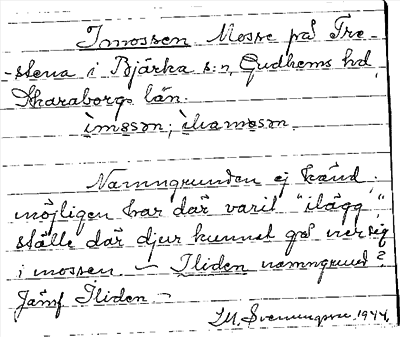 Imossen Mosse på Tre-
-stena i Bjärka s:n, Gudhems hd,
Skaraborgs län.
ìmɷsən,
Namngrunden ej känd,
möjligen har där varit "ilägg",
ställe där djur kunnat gå ner sig
i mossen. — Iliden namngrund?
Jämf Iliden. —
I.M. Svenungsson 1944.